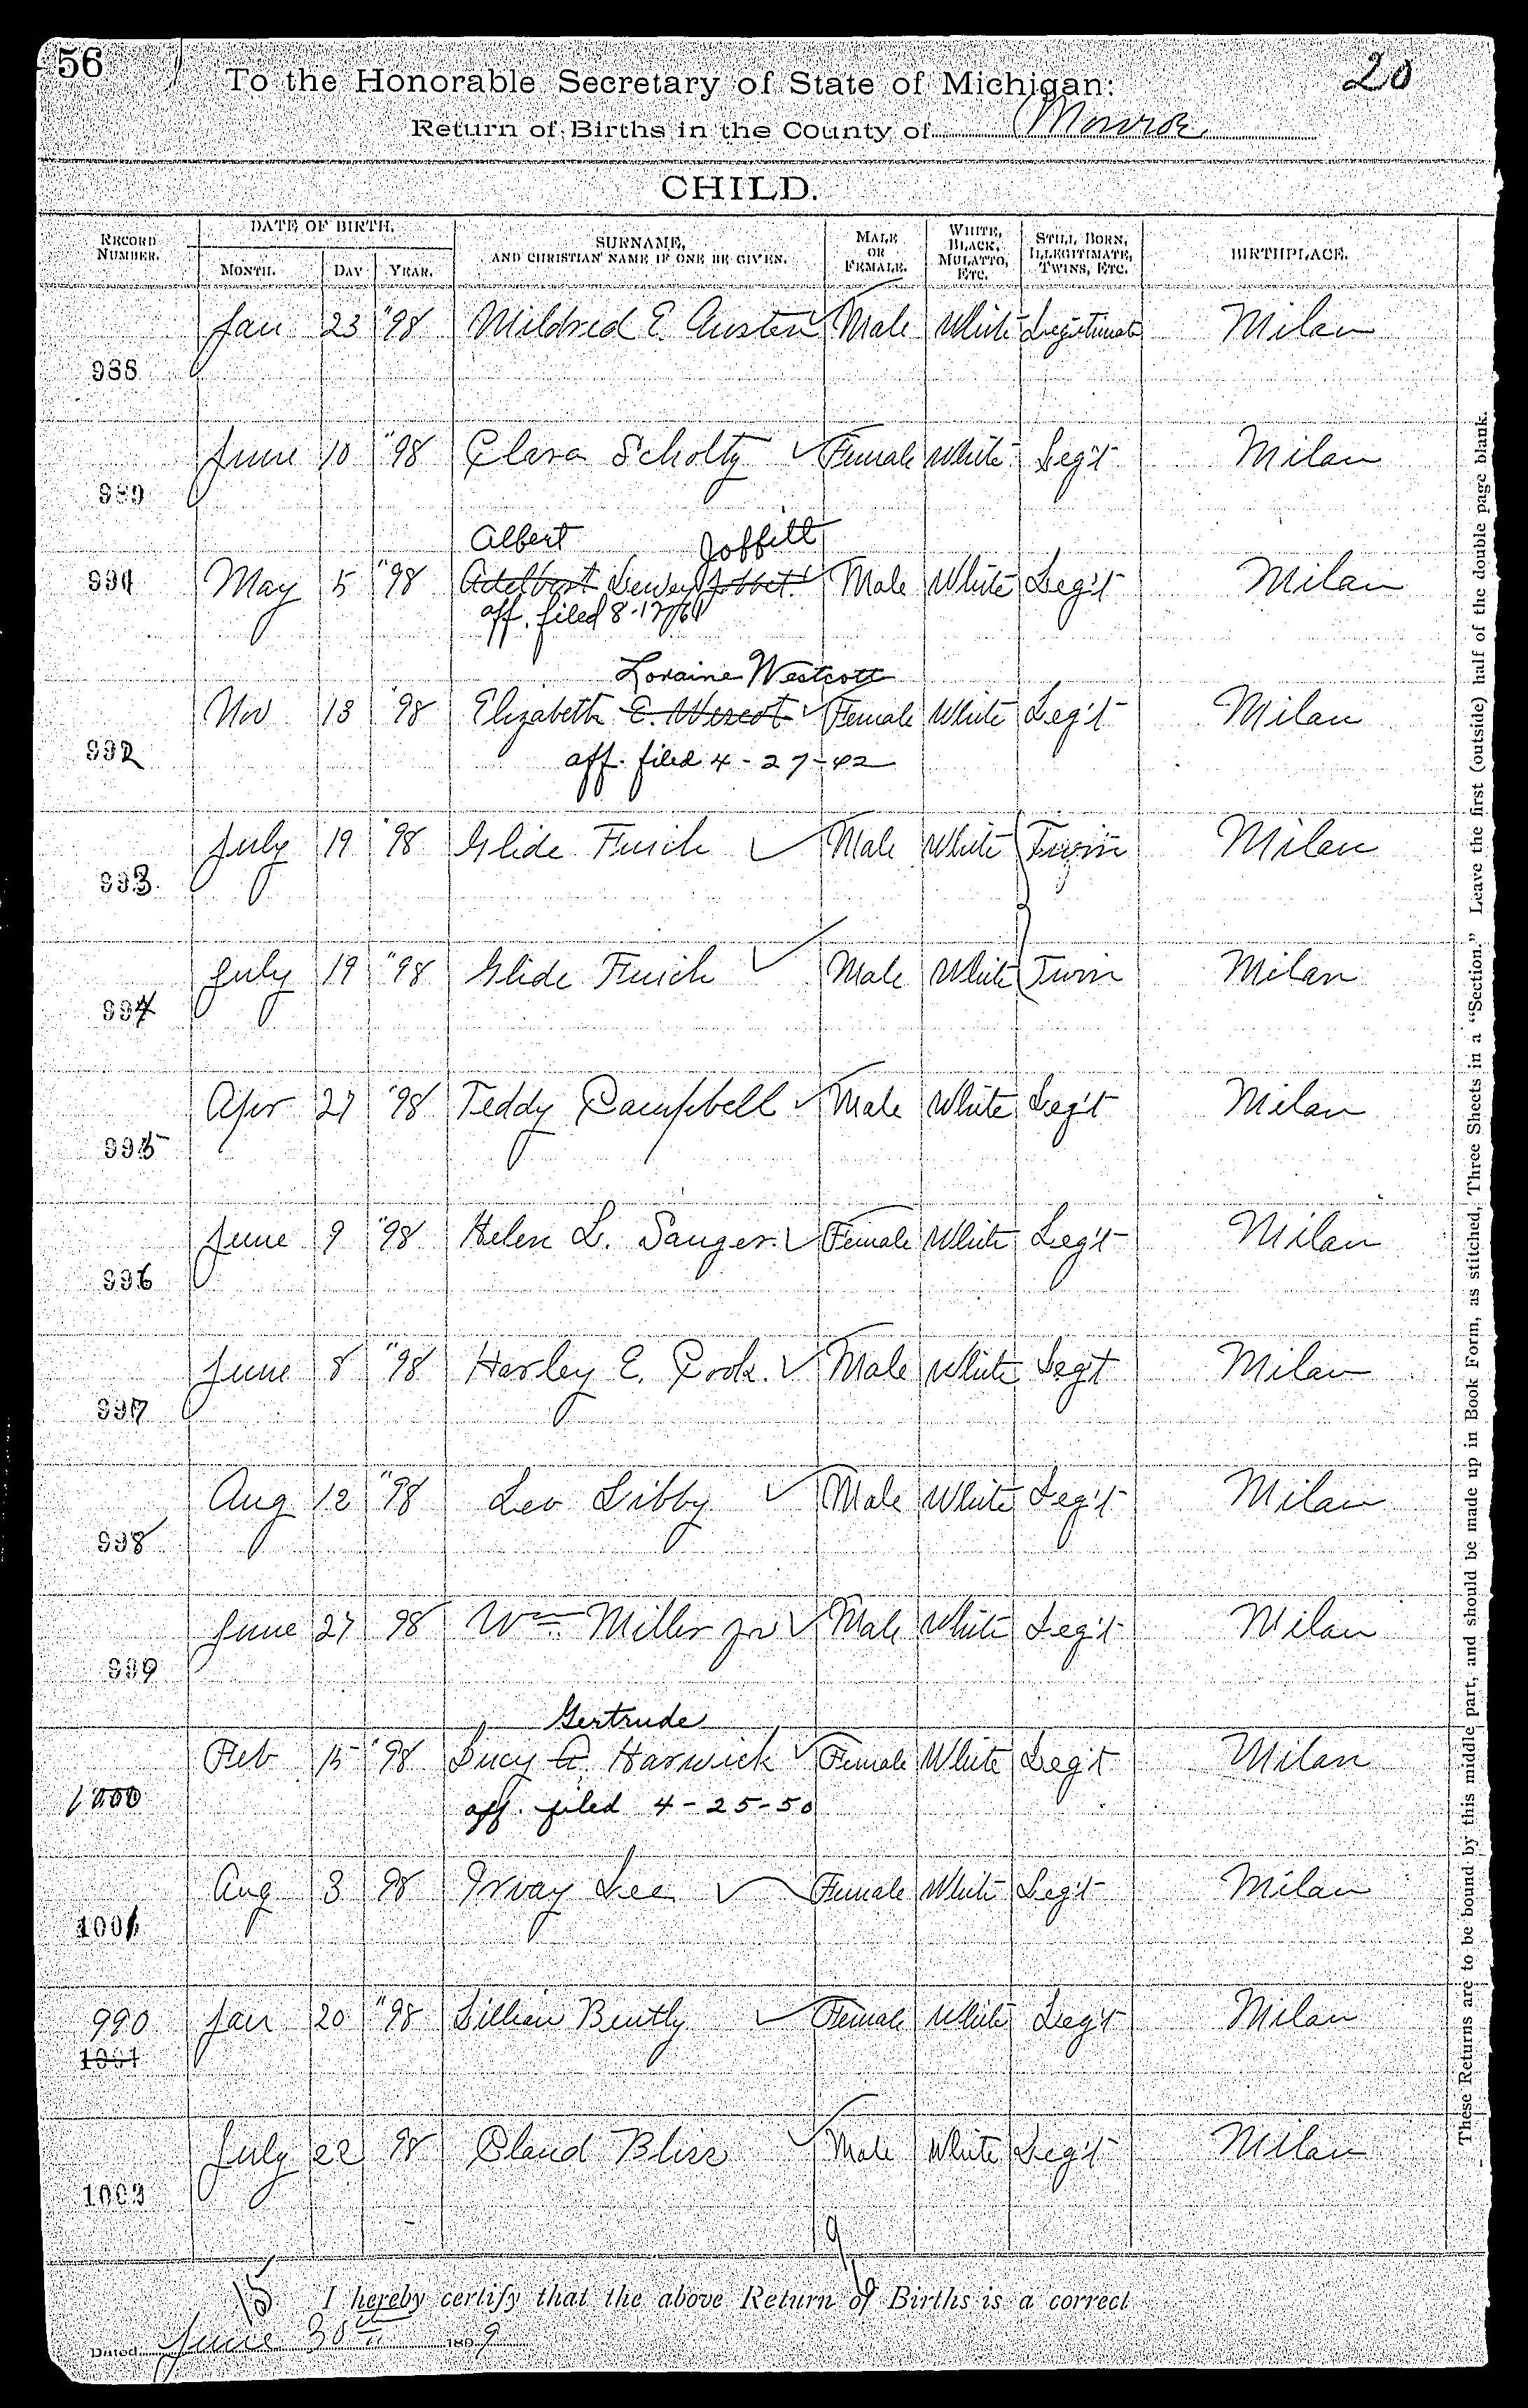 56
20
To the Honorable Secretary of State of Michigan:
Return of Births in the County of Monroe
CHILD.
RECORD NUMBER.
DATE OF BIRTH.
MONTH. DAY YEAR.
SURNAME, AND CHRISTIAN NAME IF ONE BE GIVEN.
MALE OR FEMALE.
WHITE, BLACK, MULATTO, ETC.
STILL BORN, ILLEGITIMATE, TWINS, ETC.
BIRTHPLACE.
988 Jan 23 "98 Mildred E. Austen Male White Legitimate Milan
989 June 10 "98 Clara Scholty Female White Leg't Milan
Albert Joffitt
991 May 5 "98 Adelbert Dewey Male White Leg't Milan
aff. filed 8-17-61
Loraine Westcott
992 Nov 13 "98 Elizabeth E. Wescot Female White Leg't Milan
aff. filed 4-27-42
993 July 19 "98 Glide Male White Twin Milan
994 July 19 "98 Glide Male White Twin Milan
995 Apr 27 "98 Teddy Campbell Male White Leg't Milan
996 June 9 "98 Helen L. Sanger Female White Leg't Milan
997 June 8 "98 Harley E. Cook. Male White Leg't Milan
998 Aug 12 "98 Leo Libby Male White Leg't Milan
999 June 27 98 Wm Miller Jr Male White Leg't Milan
Gertrude
1000 Feb 15 "98 Lucy A. Harwick Female White Leg't Milan
aff. filed 4-25-50
1001 Aug 3 98 Lee Female White Leg't Milan
990 Jan 20 "98 Lillian Bently Female White Leg't Milan
1001
1003 July 22 98 Claud Bliss Male White Leg't Milan
15
9
6
I hereby certify that the above Return of Births is a correct
Dated June 30th 1899
These Returns are to be bound by this middle part, and should be made up in Book Form, as stitched, Three Sheets in a "Section." Leave the first (outside) half of the double page blank.